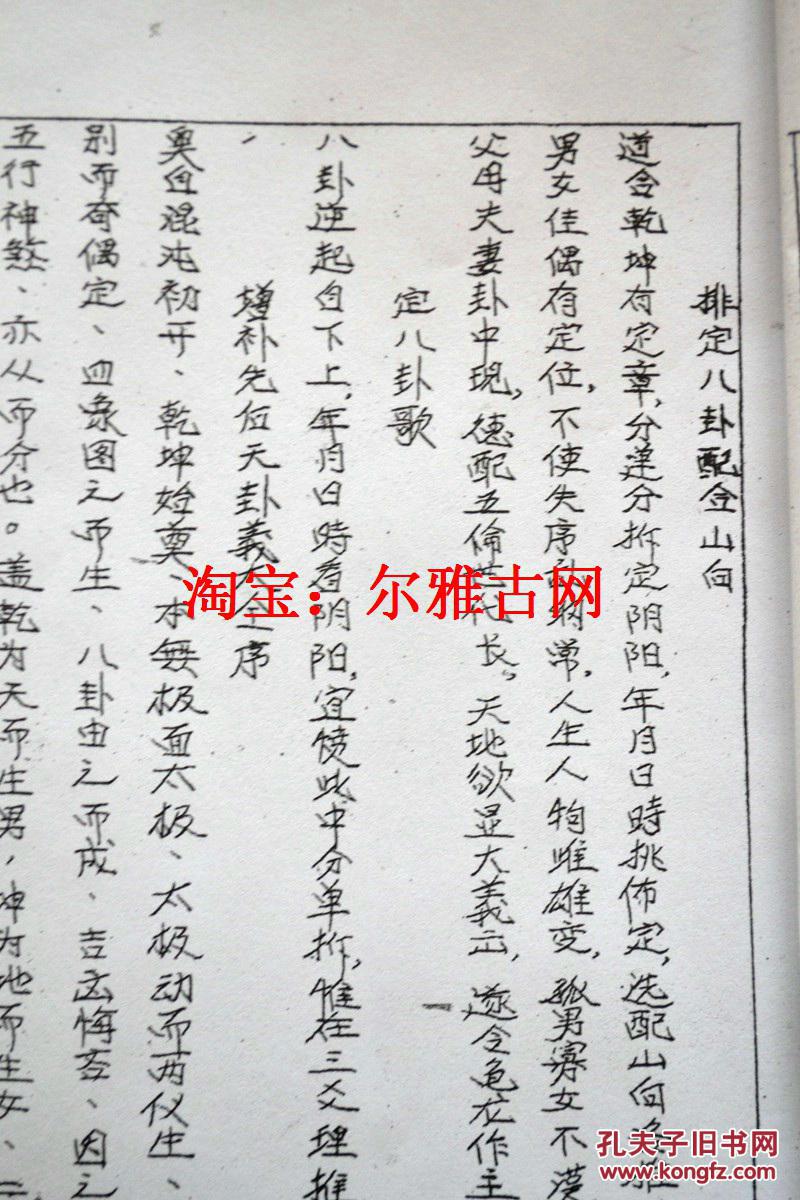 排定八卦配合山向
道合乾坤有定章，分逆分拆定阴阳，年月日時挑佈定，选配山向
男女佳偶有定位，不使失序乱纲常，人生人物雌雄变，孤男寡女不
父母夫妻卦中现，德配五倫世代长。天地欲显大義正，遂令龟龙作主
定八卦歌
八卦逆起自下上，年月日時看阴阳，宜愤此中分单拆，惟在三爻理推
增补先位天卦義大全序
奥自混沌初开、乾坤始奠、本無极面太极、太极动而两仪生、
别而奇偶定、四象图之而生、八卦由之而成、吉凶悔吝、因之
五行神煞、亦从而分也。盖乾为天而生男，坤为地而生女、二
淘宝：尔雅古网
孔夫子旧书网
www.kongfz.com